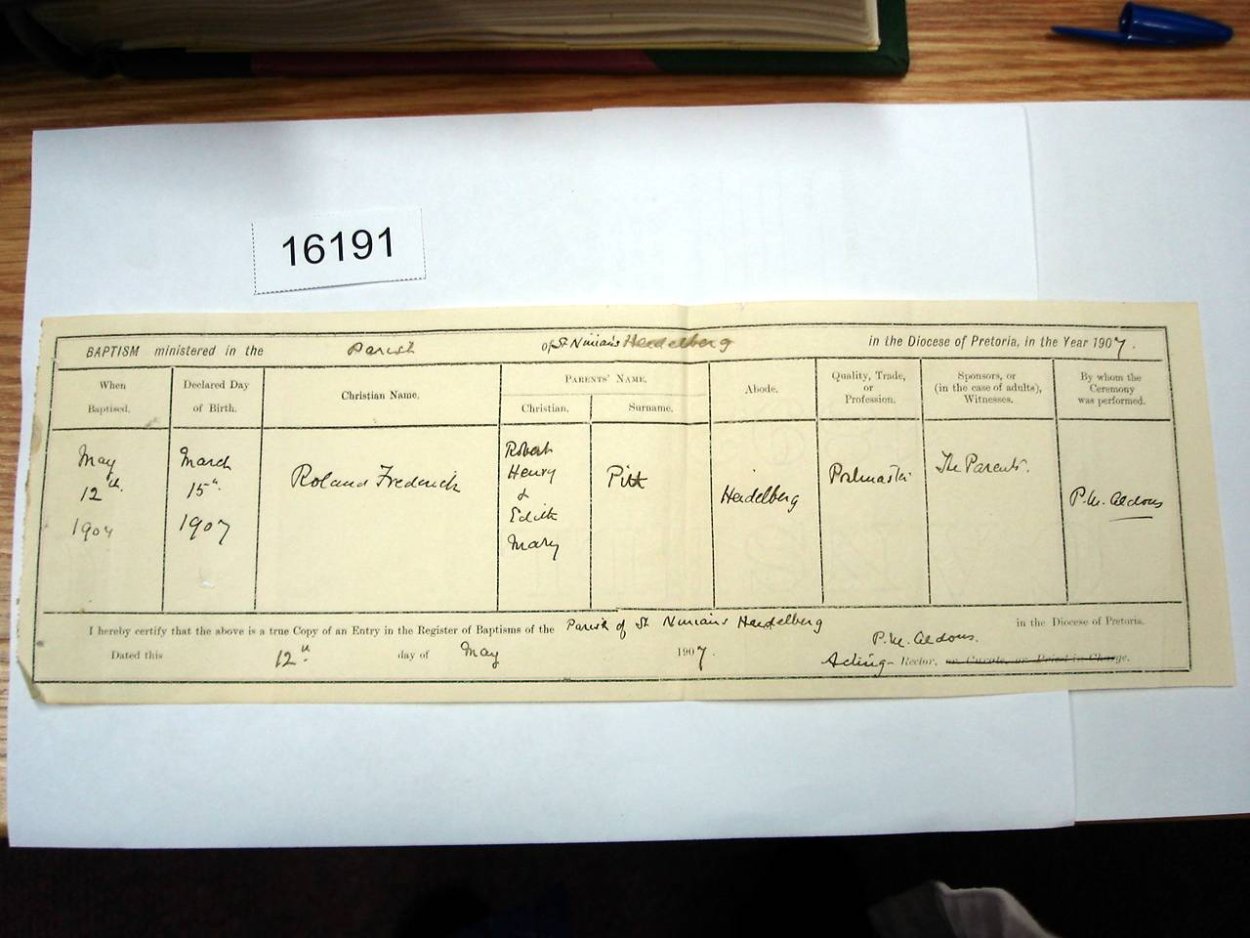 16191
BAPTISM ministered in the Parish of St Ninian's Heidelberg in the Diocese of Pretoria, in the Year 1907.
When Baptised.
Declared Day of Birth.
Christian Name.
PARENTS' NAME.
Christian.
Surname.
Abode.
Quality, Trade, or Profession.
Sponsors, or (in the case of adults), Witnesses.
By whom the Ceremony was performed.
May 12th 1907
March 15th 1907
Roland Frederick
Robert
Henry
&
Edith
Mary
Pitt
Heidelberg
Postmaster
The Parents.
P.M. Aldous
I hereby certify that the above is a true Copy of an Entry in the Register of Baptisms of the Parish of St Ninian's Heidelberg in the Diocese of Pretoria.
P.M. Aldous.
Dated this 12th day of May 1907. Acting Rector, or Curate, or Priest in Charge.